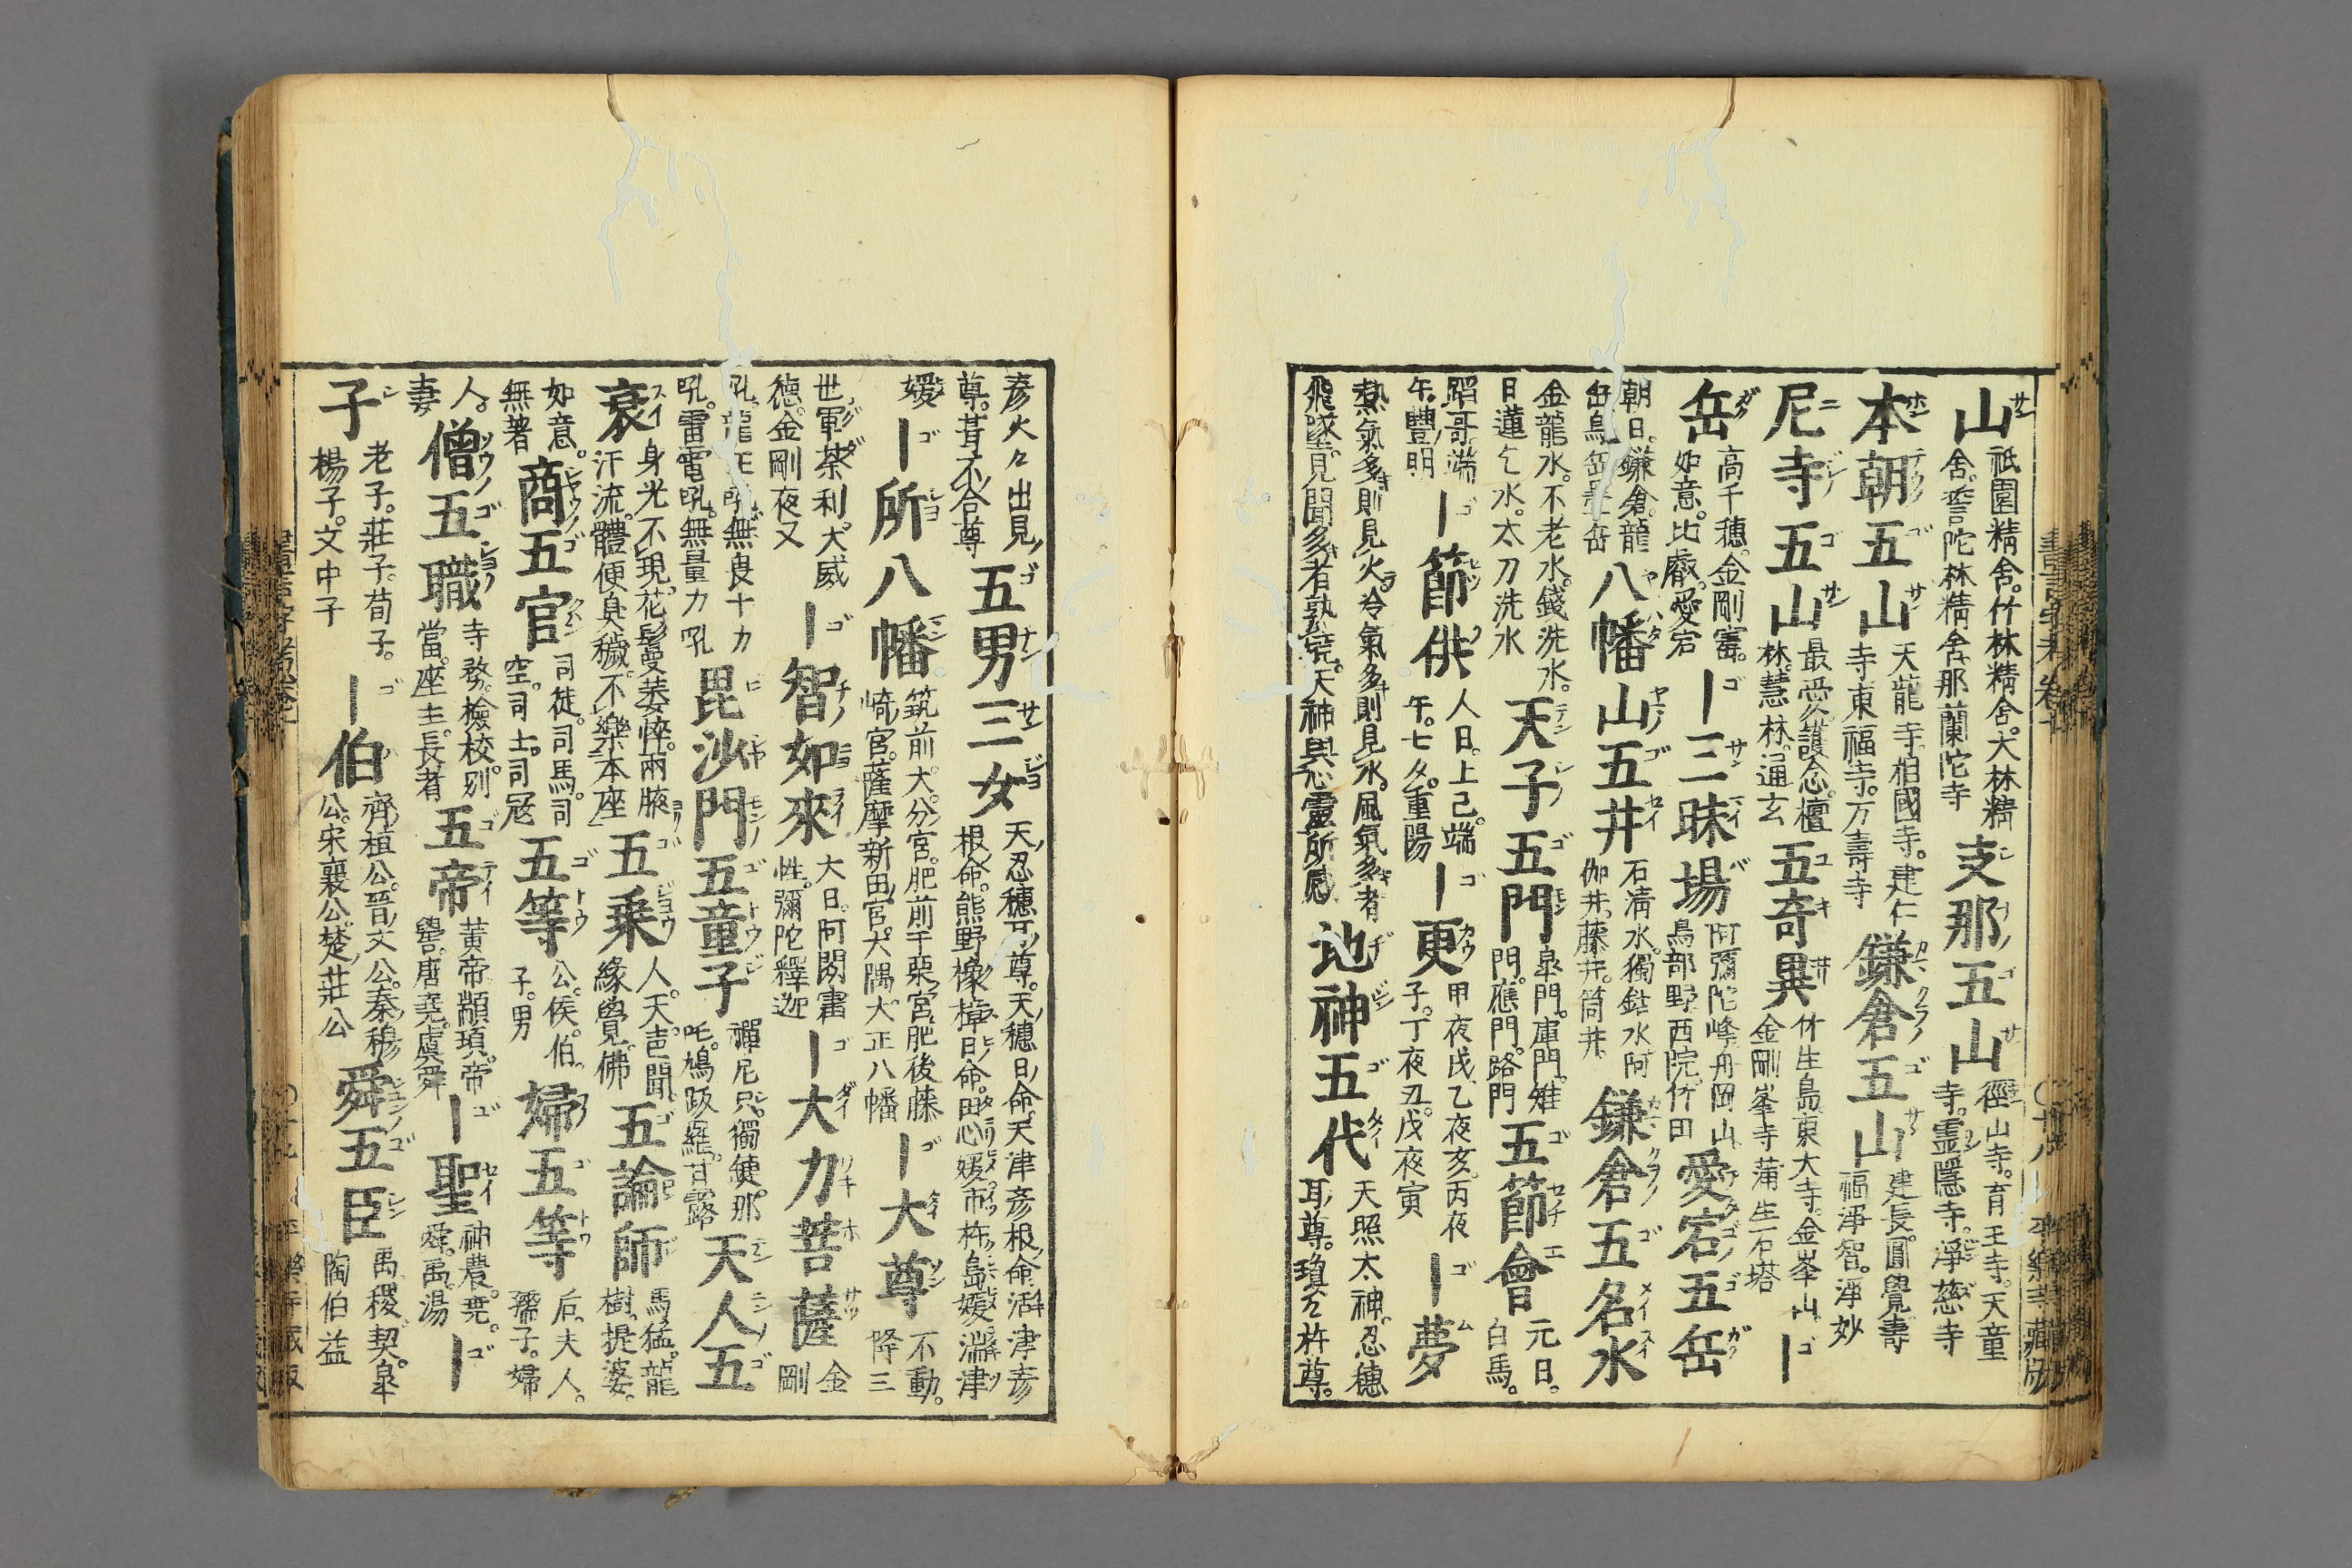 山 祇園精舍。竹林精舍。大林精舍。誓陀林精舍。那蘭陀寺 支那五山 徑山寺。育王寺。天童寺。霊隱寺。淨慈寺
本朝五山 天龍寺。相國寺。建仁寺。東福寺。万壽寺 鎌倉五山 建長。圓覺。壽福。淨智。淨妙
尼寺五山 最愛護念。檀林。慧林。通玄 五奇異 竹生島。東大寺。金峯山。金剛峯寺。蒲生石塔 ｜
岳 高千穗。金剛。如意。比叡。愛宕 ｜三昧場 阿彌陀峰。舟岡山。鳥部野。西院。竹田 愛宕五岳
朝日。鎌倉。龍 八幡山五井 石清水。獨鈷水。阿伽井。藤井。筒井 鎌倉五名水
金龍水。不老水。錢洗水。日蓮乞水。太刀洗水 天子五門 皐門。庫門。雉門。應門。路門 五節會 元日。白馬。
蹈哥。端午。豐明 ｜節供 人日。上巳。端午。七夕。重陽 ｜更 甲夜戌。乙夜亥。丙夜子。丁夜丑。戊夜寅 ｜夢
熱氣多則見火。冷氣多則見水。風氣多者飛墜。見聞多者 天神與心靈所感 地神五代 天照太神。忍穗耳尊。瓊々杵尊。
彦火々出見尊。葺不合尊 五男三女 天忍穗耳尊。天穗日命。天津彦根命。活津彦根命。熊野橡樟日命。田心媛。市杵島媛。湍津
媛 ｜所八幡 筑前大分宮。肥前千栗宮。肥後藤崎宮。薩摩新田宮。大隅大正八幡 ｜大尊 不動。降三
世。軍荼利。大威德。金剛夜叉 ｜智如來 大日。阿閦。寶性。彌陀。釋迦 ｜大力菩薩 金剛
吼。龍王吼。無畏十力吼。雷電吼。無量力吼 毘沙門五童子 禪尼只。獨健。那吒。鳩跋羅。甘露 天人五
衰 身光不現。花鬘萎悴。兩腋汗流。體便臭穢。不樂本座 五乘 人。天。声聞。緣覺。佛 五論師 馬猛。龍樹。提婆。
如意。無著 商五官 司徒。司馬。司空。司士。司冦 五等 公。侯。伯。子。男 婦五等 后。夫人。孺子。婦
人。妻 僧五職 寺務。檢校。別當。座主。長者 五帝 黃帝。顓頊。帝嚳。唐堯。虞舜 ｜聖 神農。堯。舜。禹。湯 ｜
子 老子。莊子。荀子。楊子。文中子 ｜伯 齊桓公。晉文公。秦穆公。宋襄公。楚莊公 舜五臣 禹。稷。契。皐陶。伯益